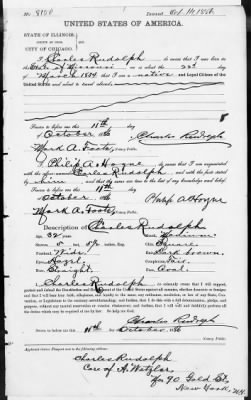 No. 8150 Issued Oct. 14, 1886
UNITED STATES OF AMERICA.
STATE OF ILLINOIS,
COUNTY OF COOK
CITY OF CHICAGO.
I Charles Rudolph do swear that I was born in the
State of Missouri on or about the 22d day of
March 1854 that I am a native and Legal Citizen of the
United States
Sworn to before me this 11th
day of October 1886 Charles Rudolph
Mark A. Foote, Notary Public.
I Philip A Hoyne do swear that I am acquainted
with the above named Charles Rudolph and with the facts above stated by
him and that the same are true to the best of my knowledge and belief.
Sworn to before me this 11th
day of October 1886 Philip A Hoyne
Mark A. Foote, Notary Public.
Description of Charles Rudolph
Age 32 years Mouth Medium
Stature 5 feet Chin Square
Forehead Wide Hair Dark brown
Eyes Hazel Complexion
Nose Straight Face Oval
I Charles Rudolph do solemnly swear that I will support,
protect and defend the Constitution and Government of the United States against all enemies, whether domestic or foreign;
and that I will bear true faith, allegiance, and loyalty to the same, any ordinance, resolution, or law of any State, Convention,
or Legislature to the contrary notwithstanding; and further, that I do this with a full determination, pledge, and
purpose, without any mental reservation or evasion whatsoever;
Charles Rudolph
Sworn to before me this 11th day of October 1886
Notary Public.
Applicant desires Passport sent to following address:
Charles Rudolph
Care of A Wetzlar
No. 90 Gold St,
New York,